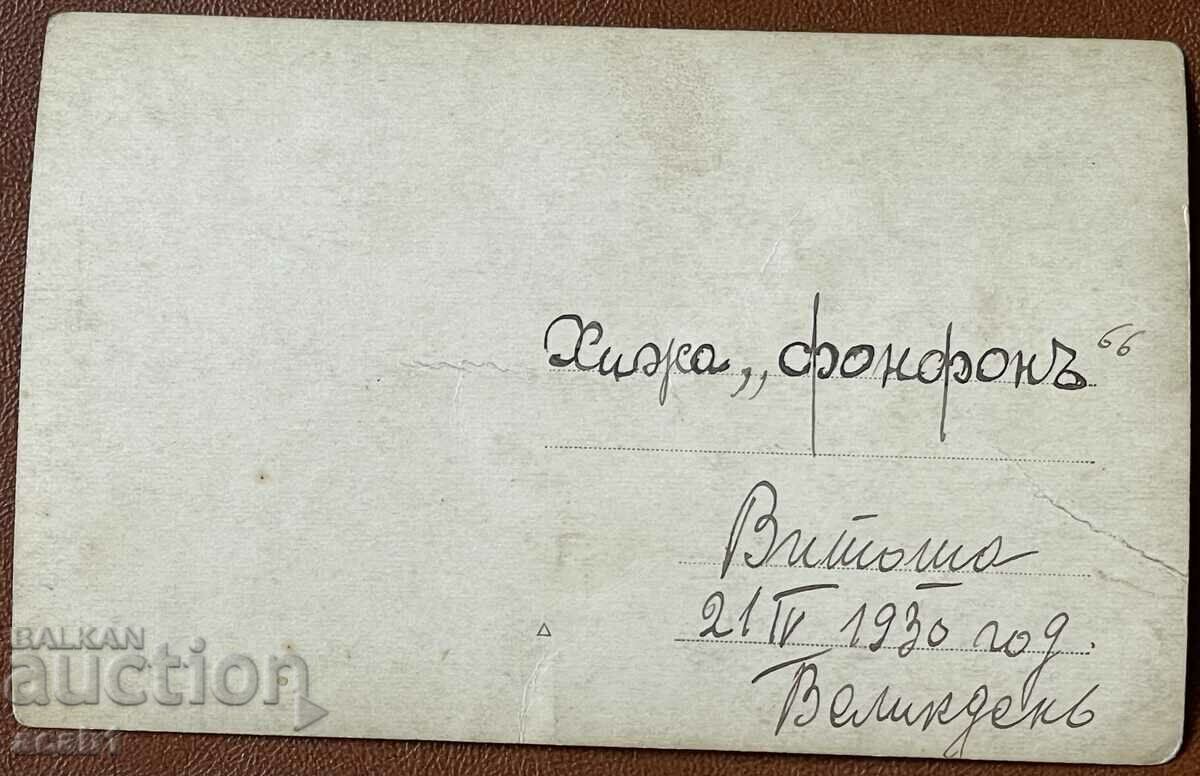 Хижа „фонфонъ“
Витоша
21 IV 1930 год.
Великдень
BALKAN
auction
aceb1